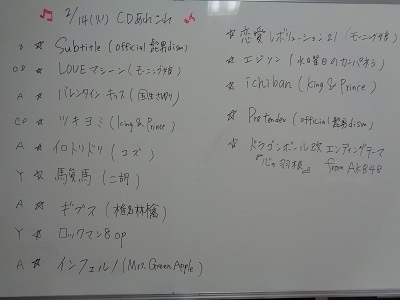 2/14(火) CDあれこれ
☆ Subtitle (official髭男dism)
CD ☆ LOVEマシーン (モーニング娘)
A ☆ バレンタイン キッス (国生さゆり)
CD ☆ ツキヨミ (King & Prince)
A ☆ イロトリドリ (ユズ)
Y ☆ 馬 (二胡)
A ☆ ギブス (椎名林檎)
Y ☆ ロックマン8 OP
A ☆ インフェルノ (Mrs. Green Apple)
☆ 恋愛レボリューション21 (モーニング娘)
☆ エジソン (水曜日のカンパネラ)
☆ ichiban (King & Prince)
☆ Pretender (official髭男dism)
☆ ドラゴンボール改 エンディングテーマ
『心の羽根』 from AKB48